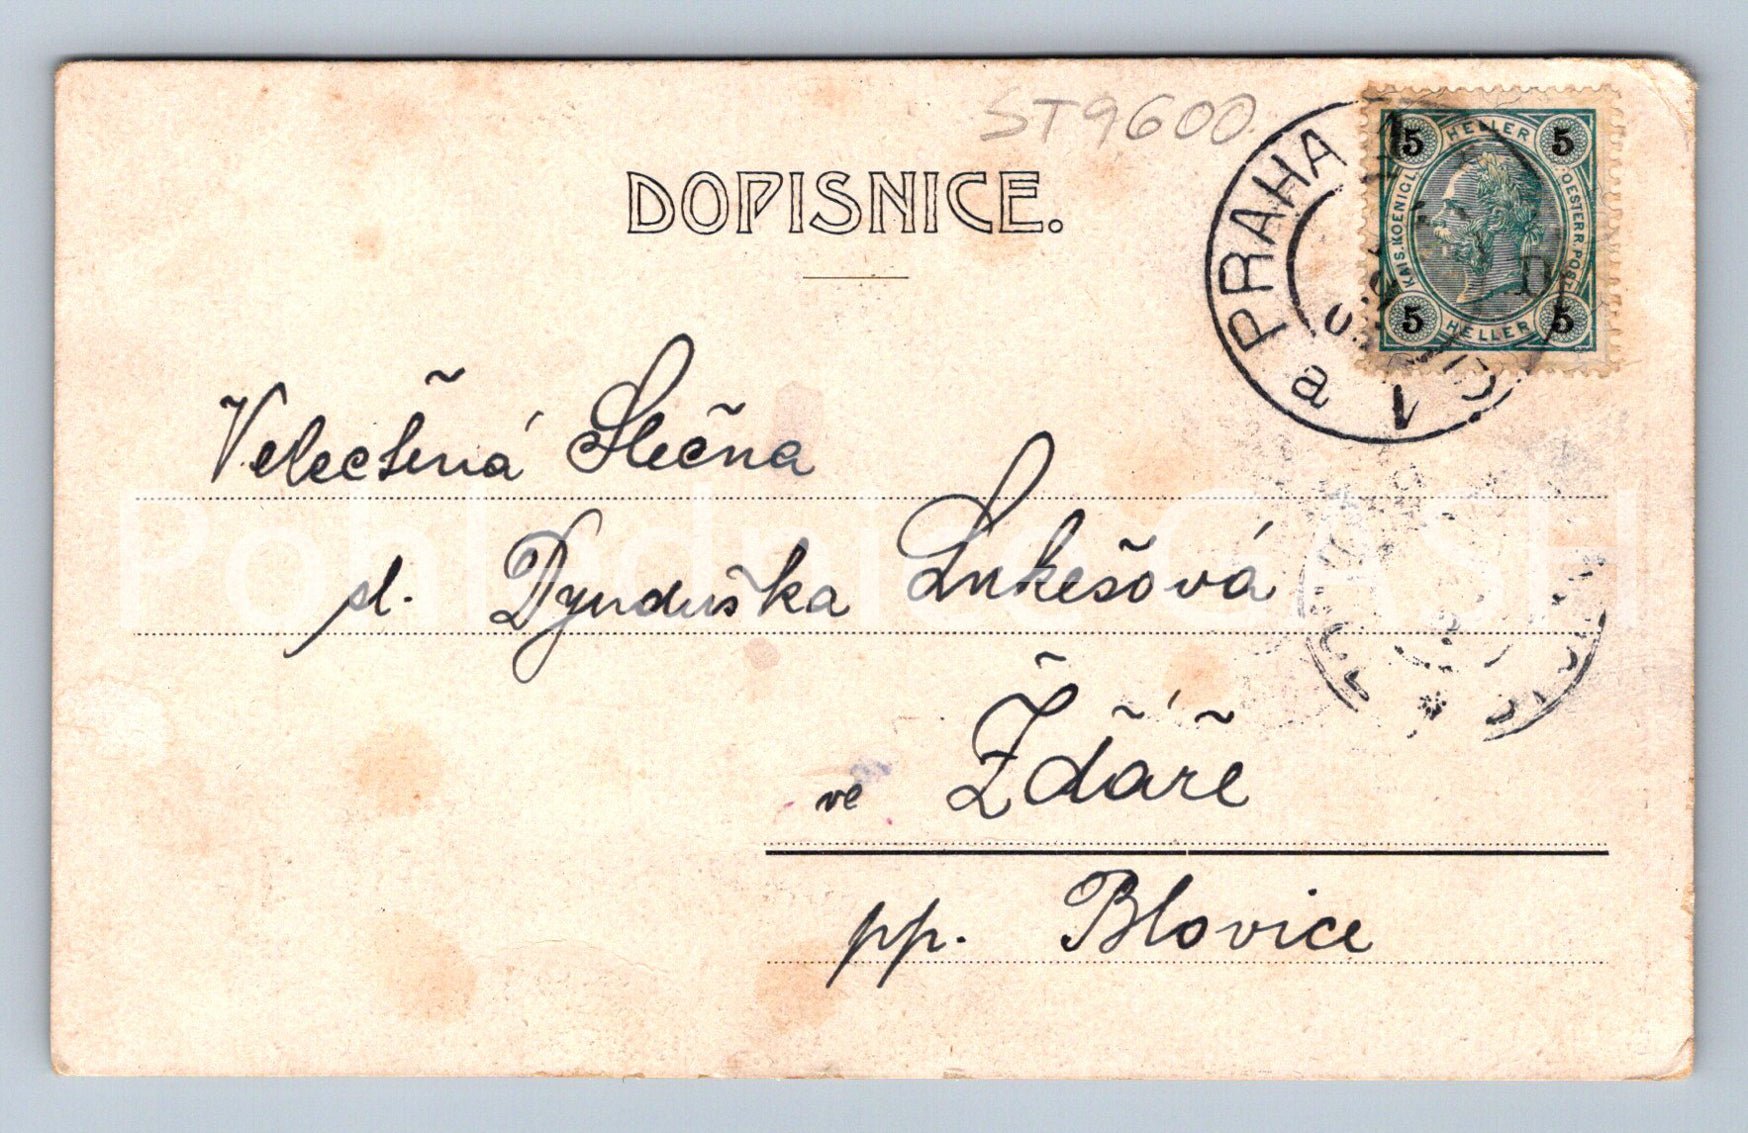 ST9600
DOPISNICE.
PRAHA 1
a
1
5 HELLER 5
KAIS. KOENIGL. OESTERR. POST
5 HELLER 5
Velectěná Slečna
sl. Dynduška Lukešová
ve Ždáře
pp. Blovice
Pohlednice GASH